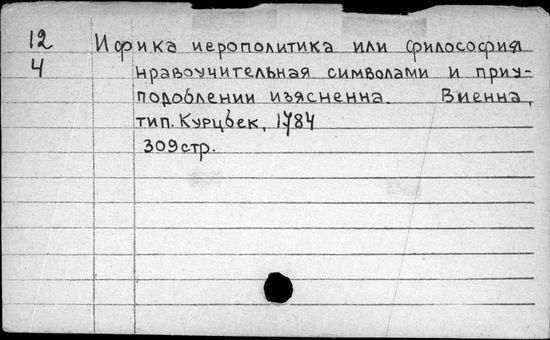 12 Ифика иерополитика или философия
4 нравоучительная символами и приу-
подоблении изясненна. Виенна,
тип. Курцбек, 1784
309 стр.